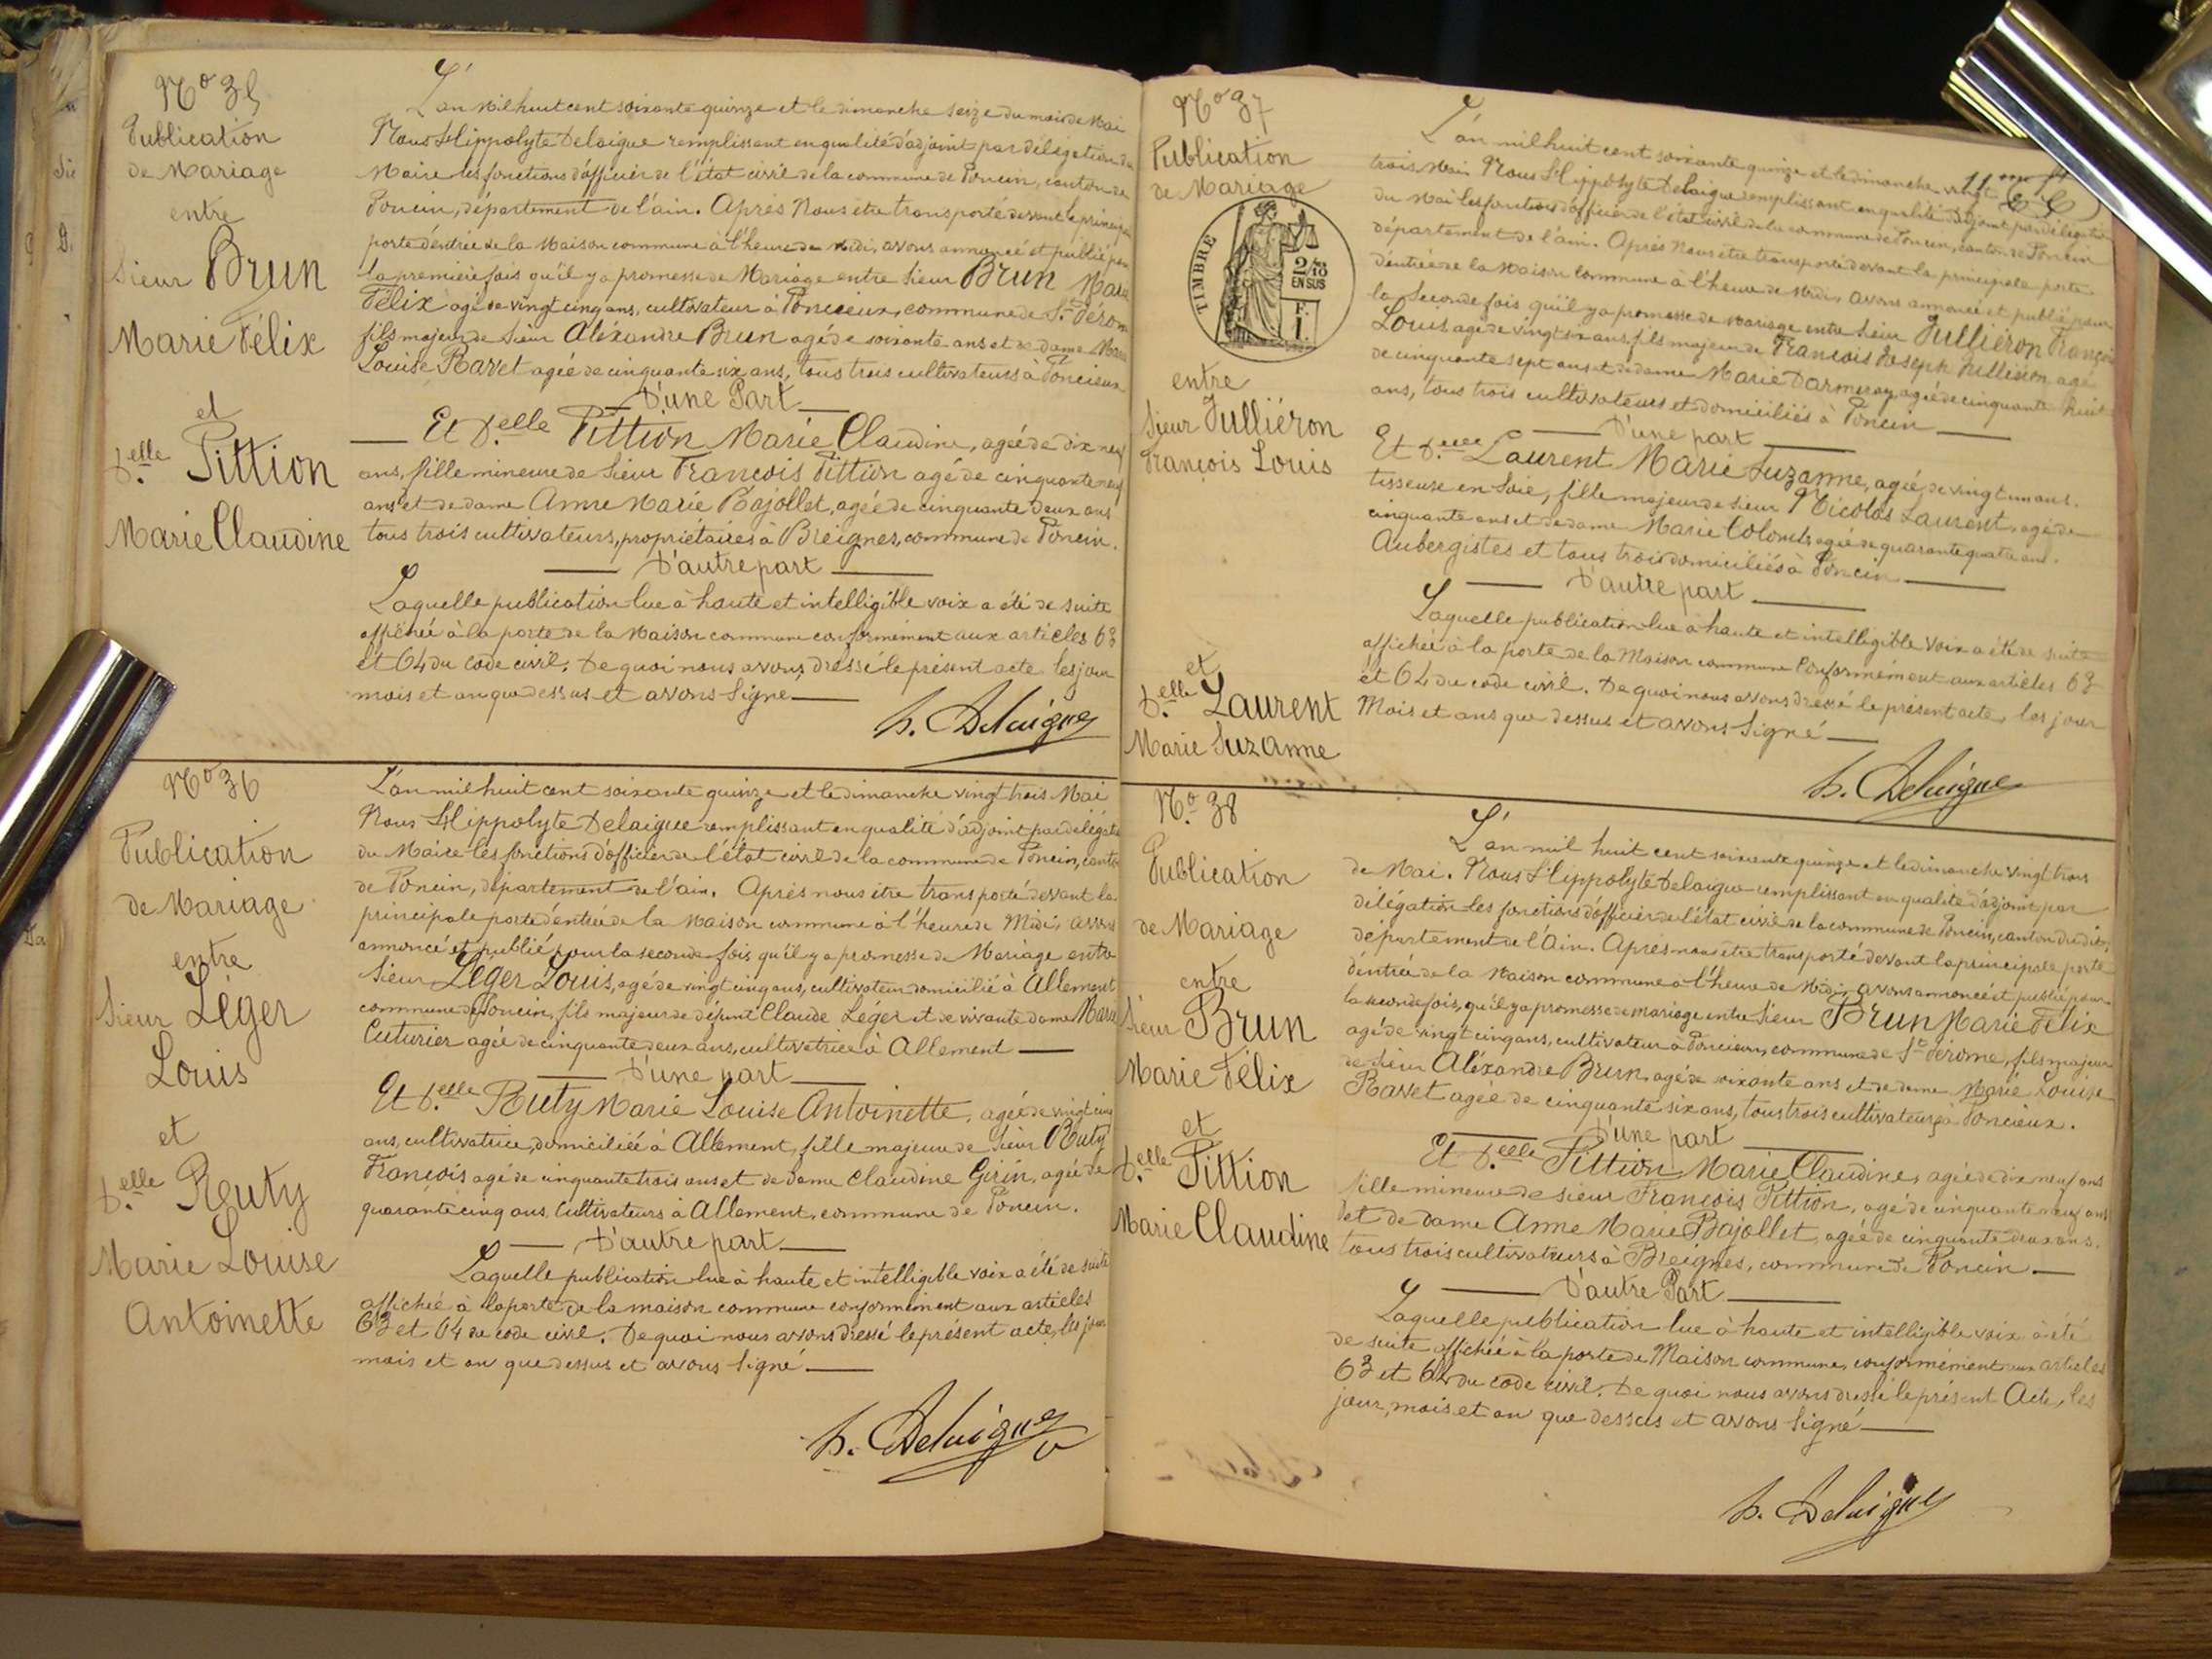 N° 35
Publication
de Mariage
entre
Sieur Brun
Marie Félix
et
D.elle Pittion
Marie Claudine
L'an mil huit cent soixante quinze et le dimanche seize du mois de Mai
Nous Hippolyte Delaigue remplissant en qualité d'adjoint par délégation du
Maire les fonctions d'officier de l'état civil de la commune de Poncin, canton de
Poncin, département de l'ain. Après Nous être transporté devant la principale
porte d'entrée de la Maison commune à l'heure de midi, avons annoncé et publié pour
la première fois qu'il y a promesse de Mariage entre Sieur Brun Marie
Félix agé de vingt cinq ans, cultivateur à Poncieux, commune de St Jérome
fils majeur de Sieur Aléxandre Brun agé de soixante ans et de dame Marie
Louise Ravet agée de cinquante six ans, tous trois cultivateurs à Poncieux
D'une Part
Et D.elle Pittion Marie Claudine, agée de dix neuf
ans, fille mineure de Sieur François Pittion agé de cinquante neuf
ans et de dame Anne Marie Bajollet, agée de cinquante deux ans
tous trois cultivateurs, propriétaires à Breignes, commune de Poncin.
D'autre part
Laquelle publication lue à haute et intelligible voix a été de suite
affichée à la porte de la Maison commune conformément aux articles 63
et 64 du code civil. De quoi nous avons dressé le présent acte les jour
mois et an que dessus et avons Signé
h. Delaigue
N° 36
Publication
de Mariage
entre
Sieur Léger
Louis
et
D.elle Reuty
Marie Louise
Antoinette
L'an mil huit cent soixante quinze et le dimanche vingt trois Mai
Nous Hippolyte Delaigue remplissant en qualité d'adjoint par délégation
du Maire les fonctions d'officier de l'état civil de la commune de Poncin, canton
de Poncin, département de l'ain. Après nous être transporté devant la
principale porte d'entrée de la Maison commune à l'heure de Midi, avons
annoncé et publié pour la seconde fois qu'il y a promesse de Mariage entre
Sieur Léger Louis, agé de vingt cinq ans, cultivateur domicilié à Allement
commune de Poncin, fils majeur de défunt Claude Léger et de vivante dame Marie
Cuturier agée de cinquante deux ans, cultivatrice à Allement
D'une part
Et D.elle Reuty Marie Louise Antoinette, agée de vingt cinq
ans, cultivatrice, domiciliée à Allement, fille majeure de Sieur Reuty
François agé de cinquante trois ans et de dame Claudine Girin, agée de
quarante cinq ans. Cultivateurs à Allement, commune de Poncin.
D'autre part
Laquelle publication lue à haute et intelligible voix a été de suite
affichée à la porte de la maison commune conformément aux articles
63 et 64 du code civil. De quoi nous avons dressé le présent acte, les jour
mois et an que dessus et avons signé
h. Delaigue
N° 37
Publication
de Mariage
TIMBRE
2/10
EN SUS
F.
1.
entre
Sieur Julliéron
François Louis
et
D.elle Laurent
Marie Suzanne
L'an mil huit cent soixante quinze et le dimanche vingt
trois Mai Nous Hippolyte Delaigue remplissant en qualité d'adjoint par délégation
du Mai les fonctions d'officier de l'état civil de la commune de Poncin, canton de Poncin
département de l'ain. Après Nous être transporté devant la principale porte
d'entrée de la Maison Commune à l'heure de Midi, avons annoncé et publié pour
la Seconde fois qu'il y a promesse de mariage entre Sieur Julliéron François
Louis agé de vingt six ans, fils majeur de François Joseph Julliéron agé
de cinquante sept ans et de dame Marie Darmeray agée de cinquante huit
ans, tous trois cultivateurs et domiciliés à Poncin
D'une part
Et D.elle Laurent Marie Suzanne, agée de vingt un ans.
tisseuse en Soie, fille majeur de Sieur Nicolas Laurent, agé de
cinquante ans et de dame Marie Colomb, agée de quarante quatre ans.
Aubergistes et tous trois domiciliés à Poncin
D'autre part
Laquelle publication lue à haute et intelligible Voix a été de suite
affichée à la porte de la Maison commune Conformément aux articles 63
et 64 du code civil. De quoi nous avons dressé le présent acte, les jour
Mois et ans que dessus et avons Signé
h. Delaigue
N° 38
Publication
de Mariage
entre
Sieur Brun
Marie Félix
et
D.elle Pittion
Marie Claudine
L'an mil huit cent soixante quinze et le dimanche vingt trois
de Mai. Nous Hippolyte Delaigue remplissant en qualité d'adjoint par
délégation les fonctions d'officier de l'état civil de la commune de Poncin, canton du dit,
département de l'Ain. Après nous être transporté devant la principale porte
d'entrée de la Maison commune à l'heure de Midi, avons annoncé et publié pour
la seconde fois, qu'il y a promesse de mariage entre Sieur Brun Marie Félix
agé de vingt cinq ans, cultivateur à Poncieux, commune de St Jérome, fils majeur
de Sieur Aléxandre Brun, agé de soixante ans et de dame Marie Louise
Ravet agée de cinquante six ans, tous trois cultivateurs à Poncieux.
D'une part
Et D.elle Pittion Marie Claudine, agée de dix neuf ans
fille mineure de sieur François Pittion, agé de cinquante neuf ans
et de dame Anne Marie Bajollet, agée de cinquante deux ans.
tous trois cultivateurs à Breignes, commune de Poncin
D'autre Part
Laquelle publication lue à haute et intelligible voix à été
de suite affichée à la porte de Maison commune, conformément aux articles
63 et 64 du code civil. De quoi nous avons dressé le présent Acte, les
jour, mois et an que dessus et avons Signé
h. Delaigue